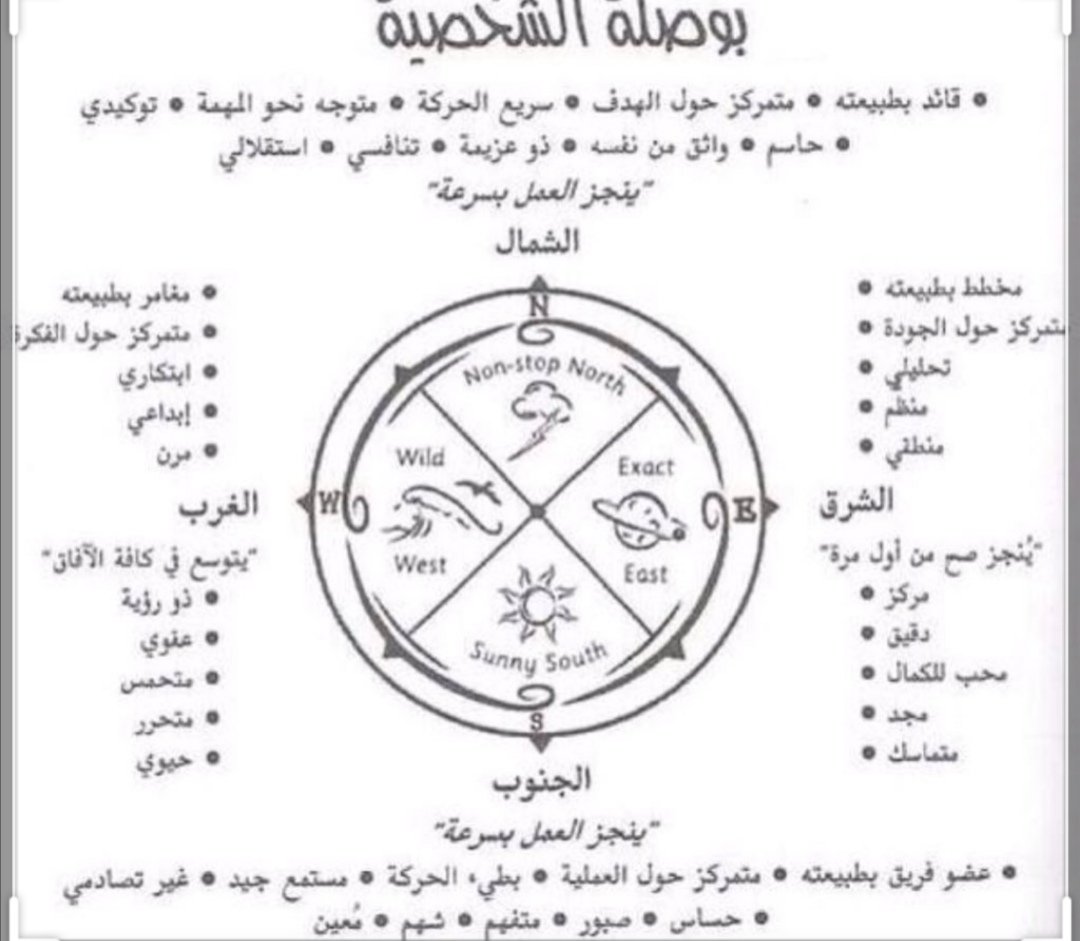 بوصلة الشخصية
• قائد بطبيعته • متمركز حول الهدف • سريع الحركة • متوجه نحو المهمة • توكيدي
• حاسم • واثق من نفسه • ذو عزيمة • تنافسي • استقلالي
"ينجز العمل بسرعة"
الشمال
• مخطط بطبيعته
• متمركز حول الجودة
• تحليلي
• منظم
• منطقي
الشرق
"يُنجز صح من أول مرة"
• مركز
• دقيق
• محب للكمال
• مجد
• متماسك
N
Non-stop North
Exact
East
E
Wild
West
W
Sunny South
S
• مغامر بطبيعته
• متمركز حول الفكرة
• ابتكاري
• إبداعي
• مرن
الغرب
"يتوسع في كافة الآفاق"
• ذو رؤية
• عفوي
• متحمس
• متحرر
• حيوي
الجنوب
"ينجز العمل بسرعة"
• عضو فريق بطبيعته • متمركز حول العملية • بطيء الحركة • مستمع جيد • غير تصادمي
• حساس • صبور • متفهم • شهم • مُعين